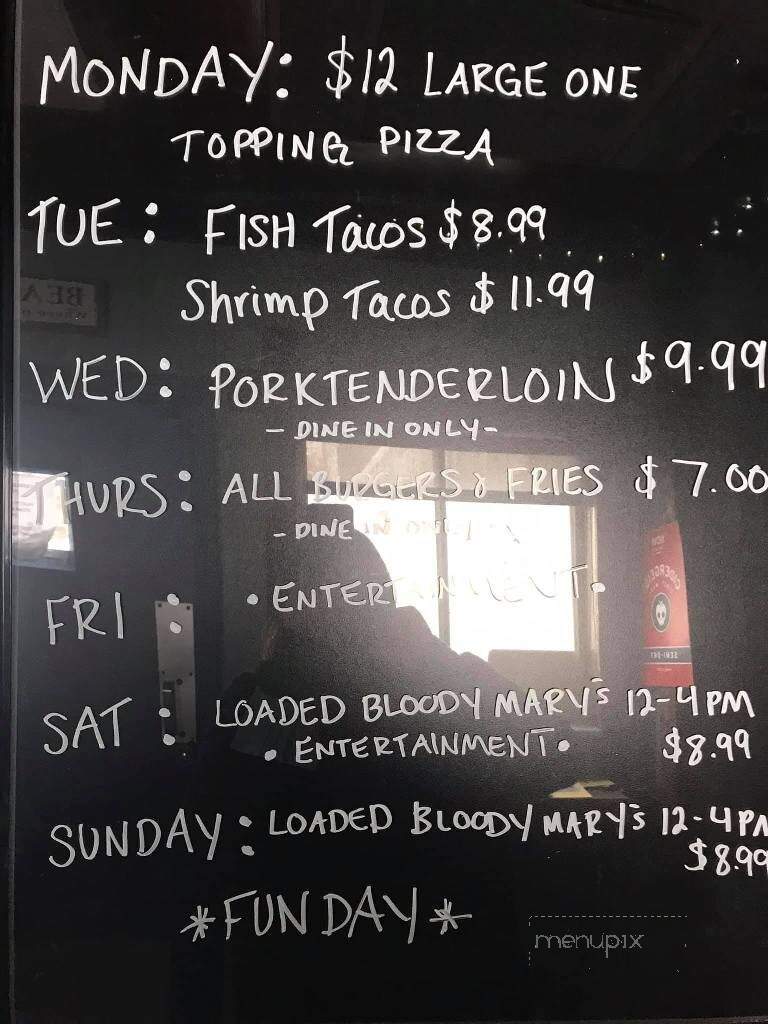 MONDAY: $12 LARGE ONE
TOPPING PIZZA
TUE: FISH Tacos $8.99
Shrimp Tacos $11.99
WED: PORKTENDERLOIN $9.99
- DINE IN ONLY-
THURS: ALL BURGERS & FRIES $7.00
- DINE IN ONLY -
FRI: • ENTERTAINMENT •
SAT: LOADED BLOODY MARY'S 12-4PM
• ENTERTAINMENT • $8.99
SUNDAY: LOADED BLOODY MARY'S 12-4PM
$8.99
*FUNDAY*
menupix